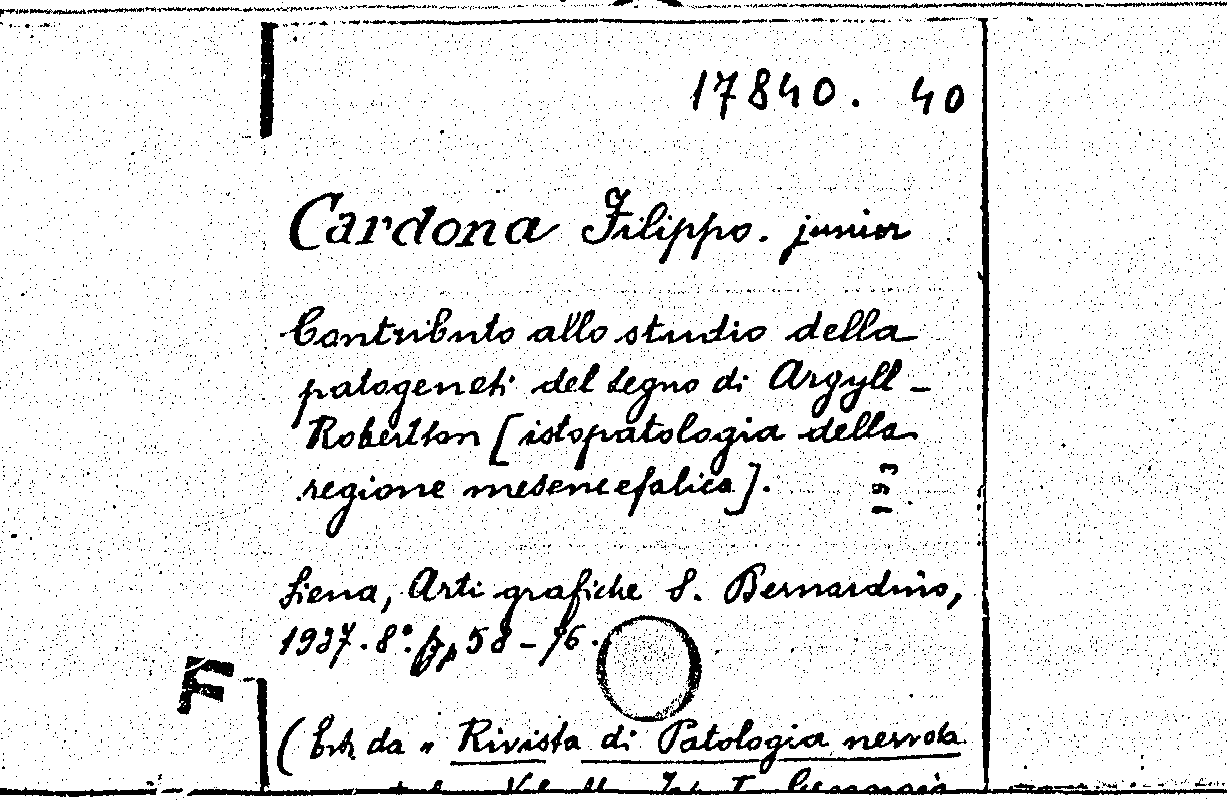 17840. 40
Cardona Filippo. junior
Contributo allo studio della
patogenesi del segno di Argyll-
Robertson [istopatologia della
regione mesencefalica].
193
Siena, Arti grafiche S. Bernardino,
1937. 8°. pp. 58-76.
F
(Estr. da « Rivista di Patologia nervosa